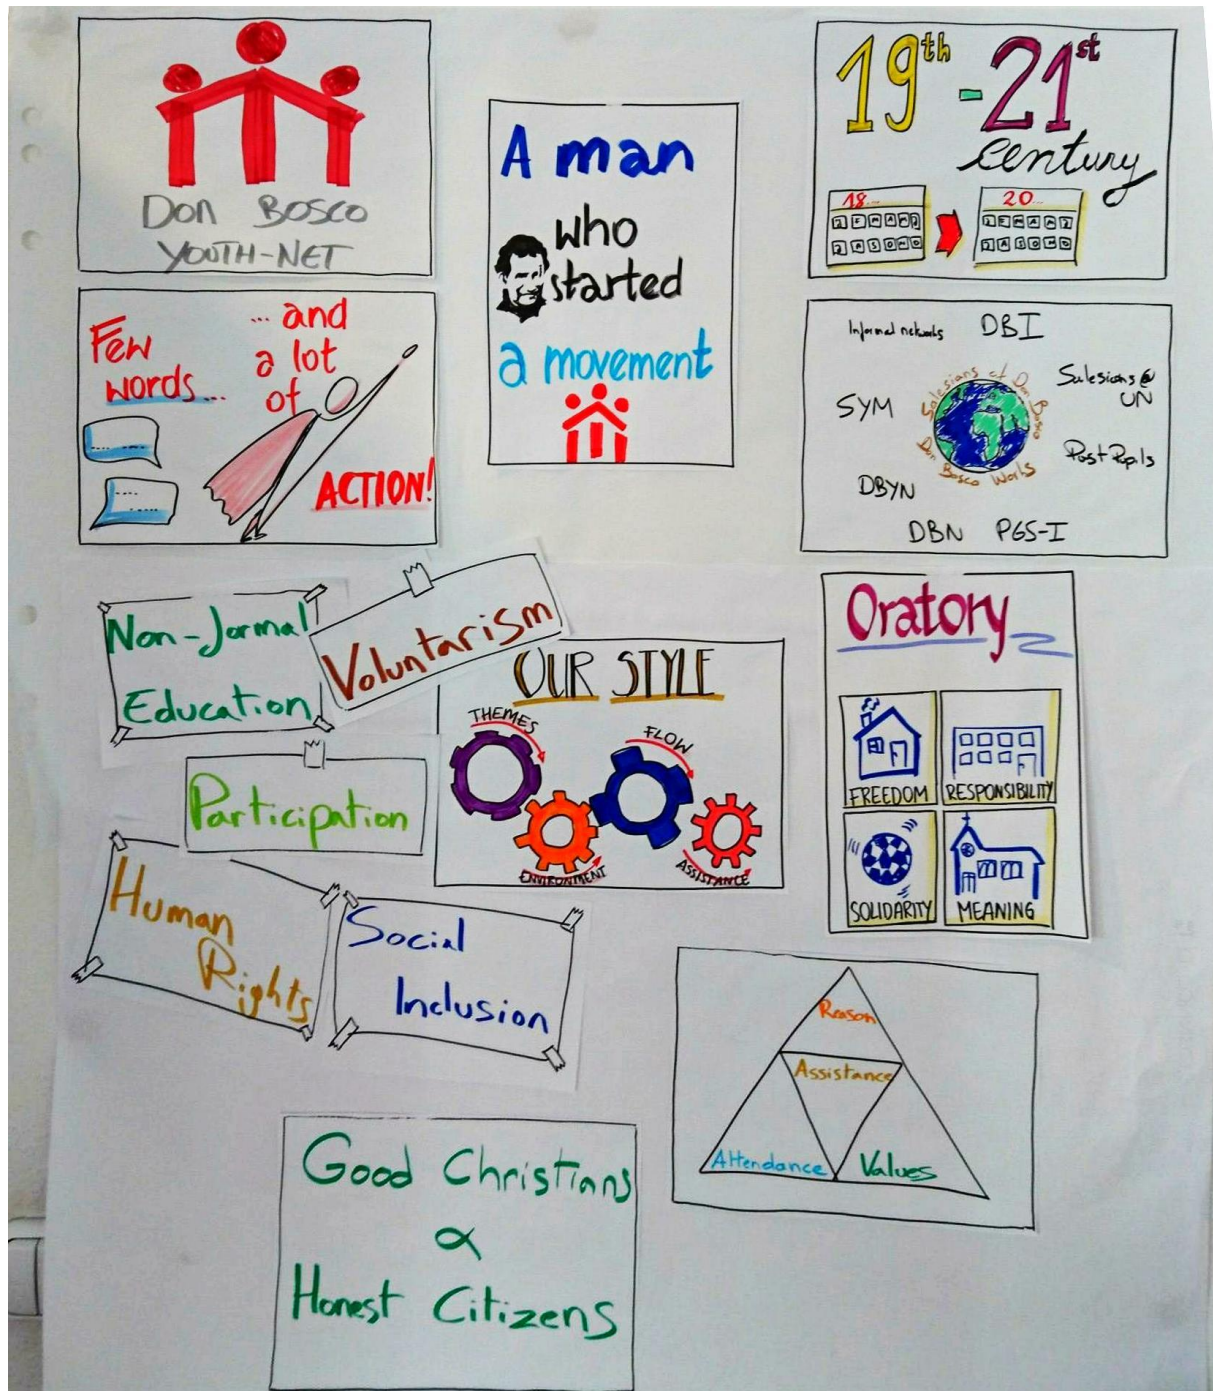 Don Bosco
YOUTH-NET
A man
who
started
a movement
19th - 21st
century
18...
20...
J F M A M J
J A S O N D
J F M A M J
J A S O N D
Few
words...
... and
a lot
of
ACTION!
Informal networks
DBI
Salesians @
UN
SYM
Salesians of Don Bosco
Don Bosco Works
Past Pupils
DBYN
DBN
PGS-I
Non-formal
Education
Voluntarism
Participation
Human
Rights
Social
Inclusion
OUR STYLE
THEMES
FLOW
ENVIRONMENT
ASSISTANCE
Oratory
FREEDOM
RESPONSIBILITY
SOLIDARITY
MEANING
Reason
Assistance
Attendance
Values
Good Christians
&
Honest Citizens